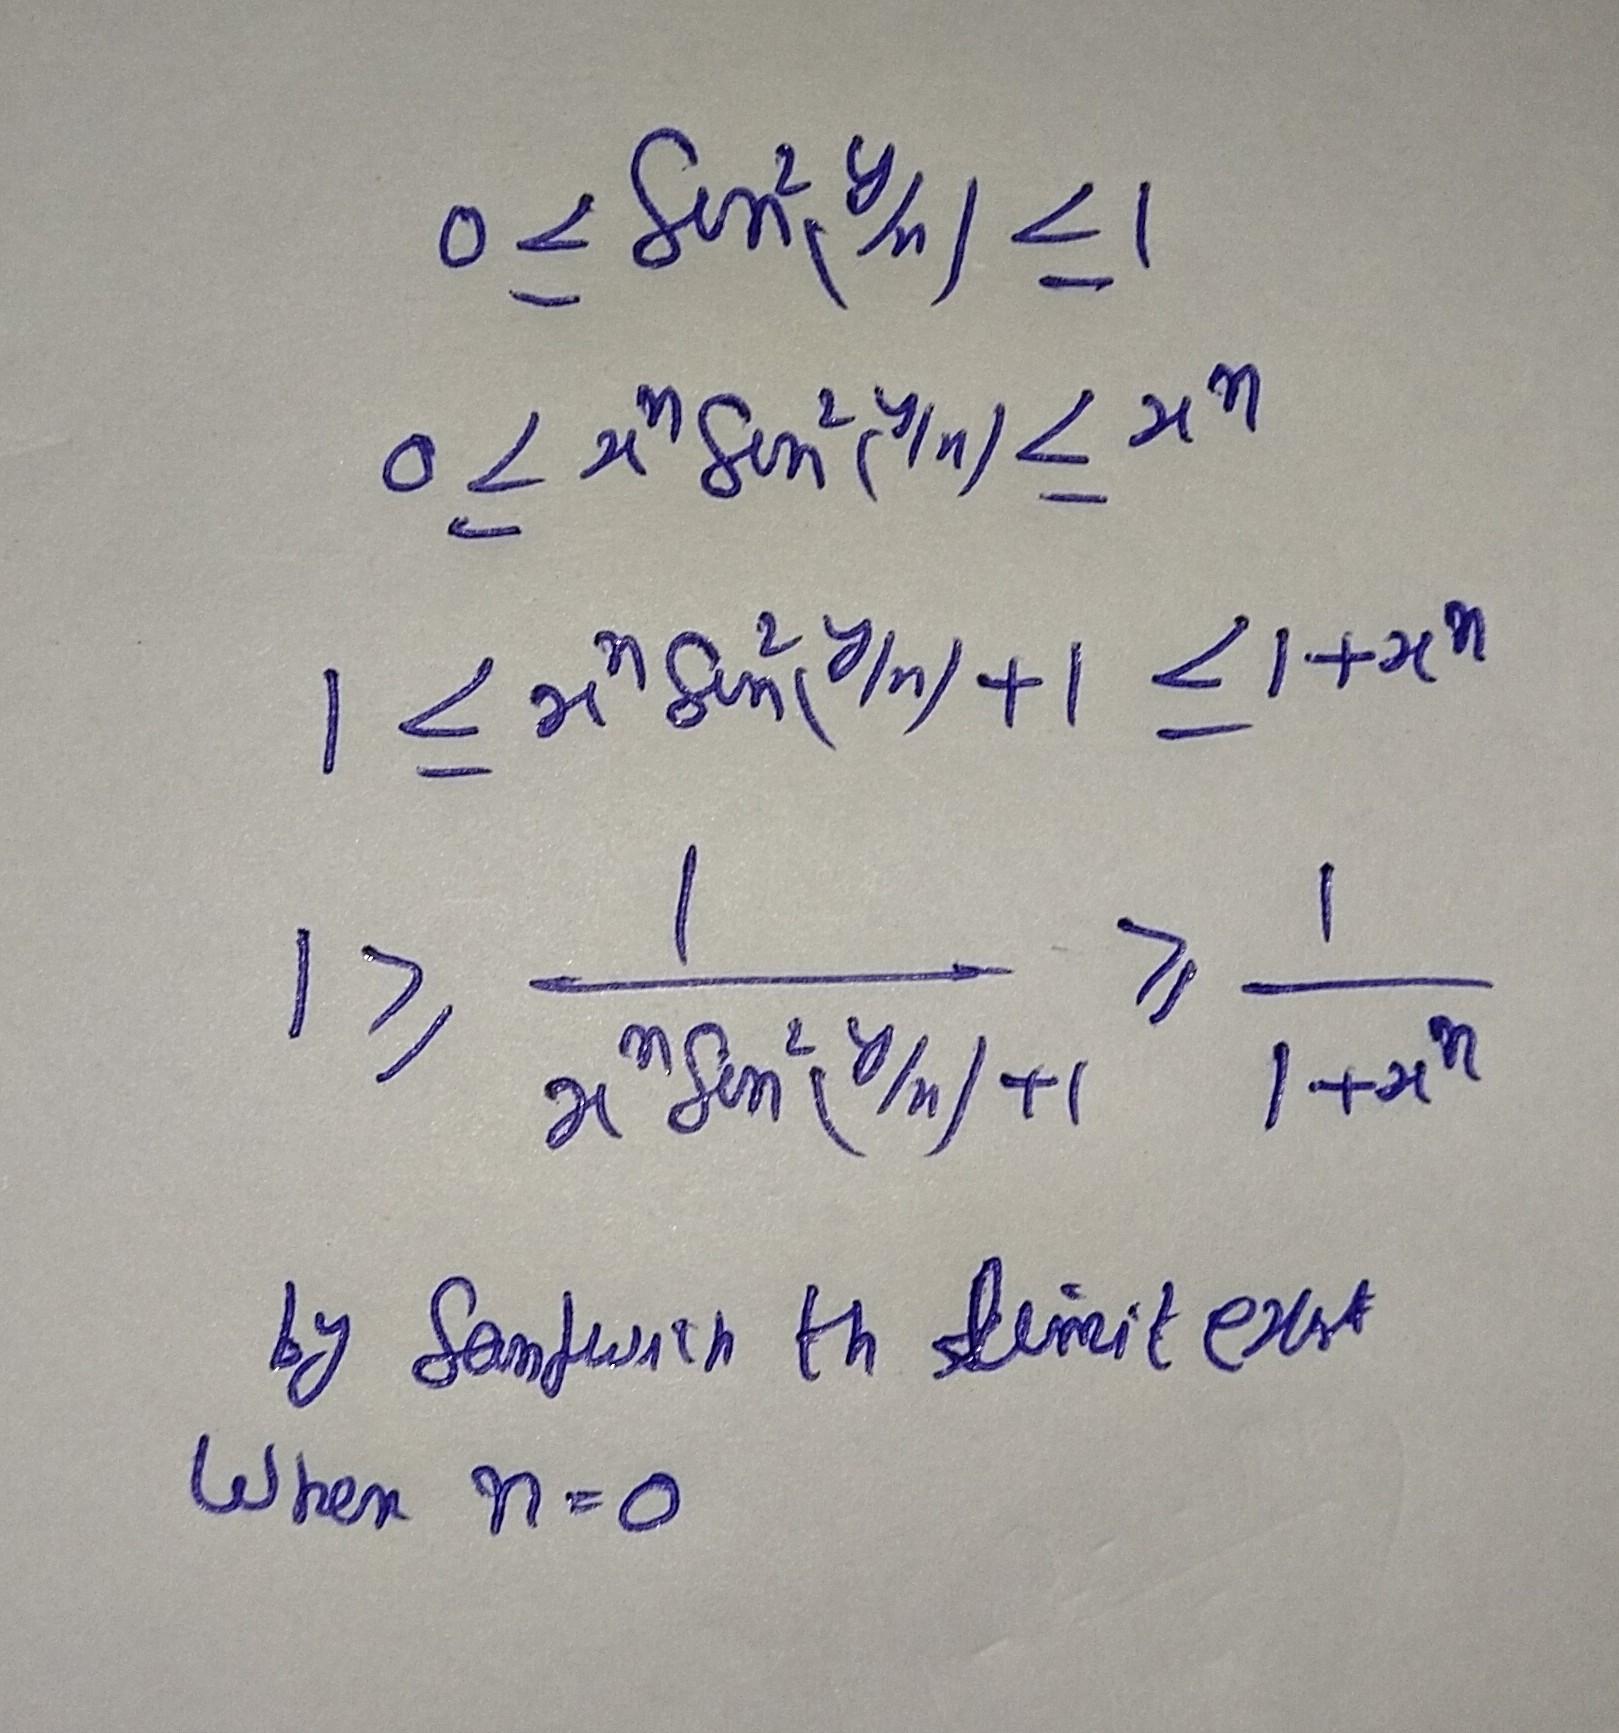 0 ≤ Sin²(y/n) ≤ 1
0 ≤ xⁿ Sin²(y/n) ≤ xⁿ
1 ≤ xⁿ Sin²(y/n) + 1 ≤ 1 + xⁿ
1 ≥ 1 / (xⁿ Sin²(y/n) + 1) ≥ 1 / (1 + xⁿ)
by Sandwich th limit exist
When n = 0